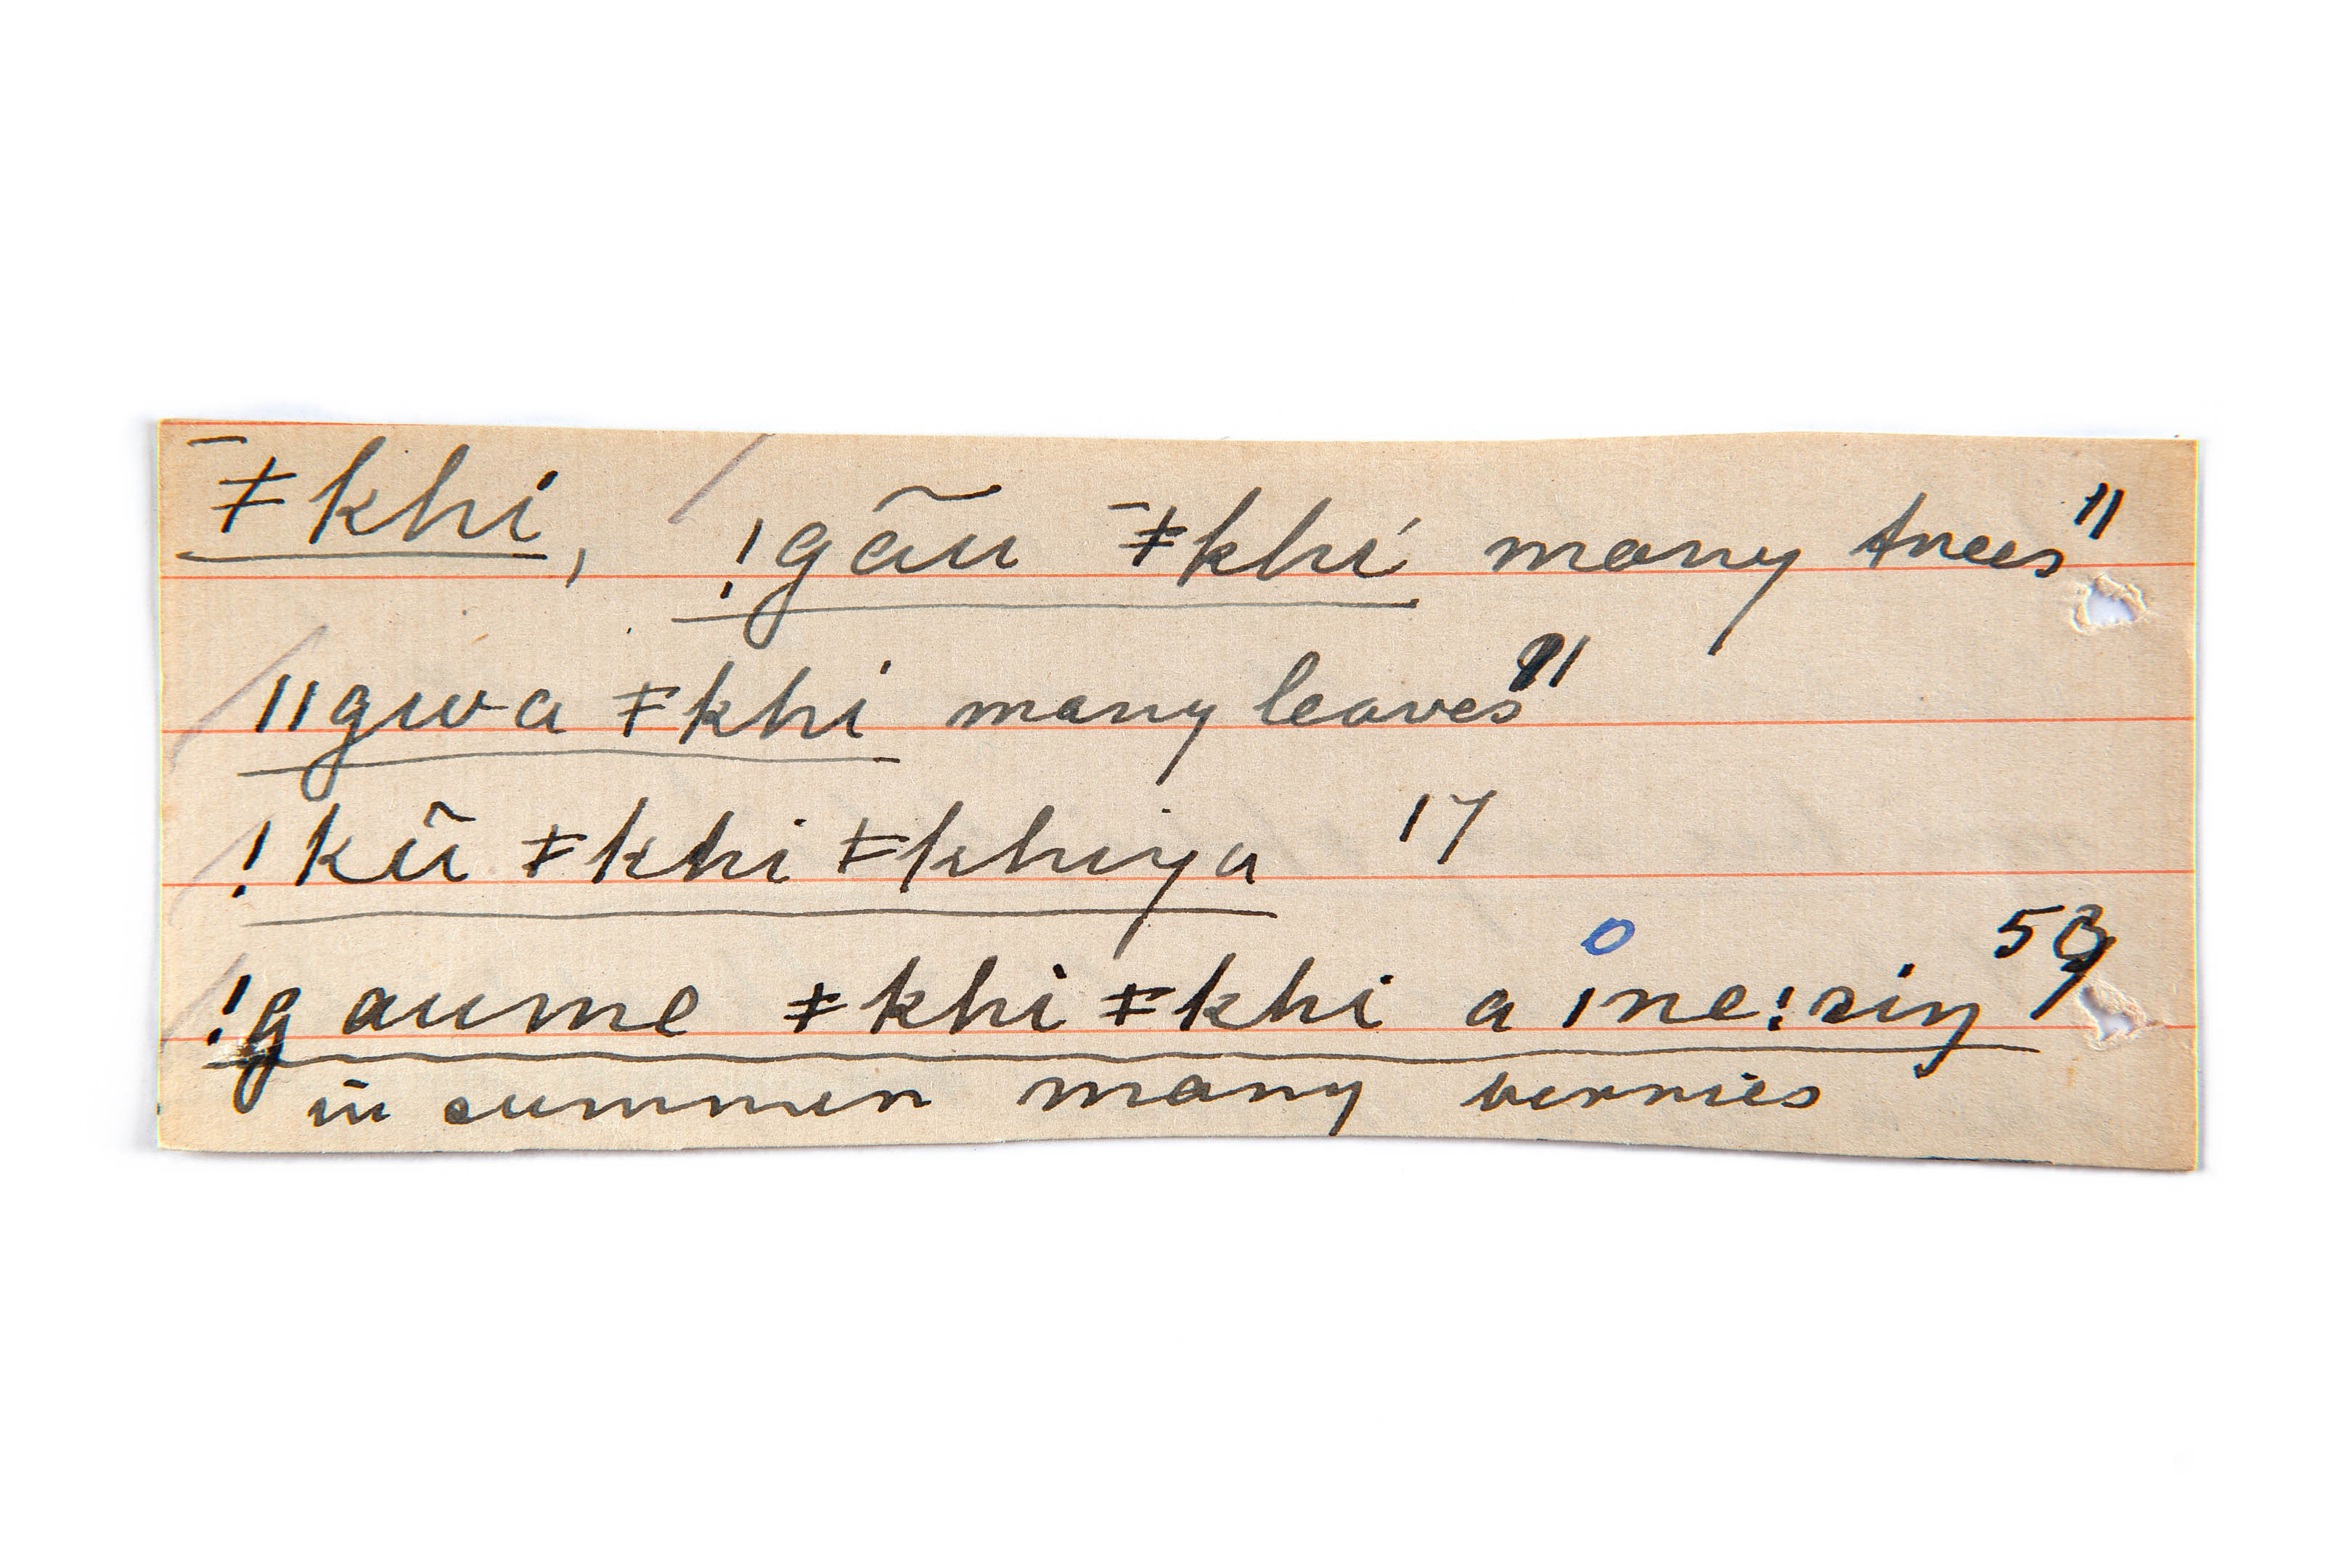 ¯ǂkhi, !gãũ ¯ǂkhi many trees 11
ǁgwa ǂkhi many leaves 11
!kũ ǂkhi ǂkhiya 17
!gaume ǂkhi ǂkhi a ǀne!siŋ
in summer many berries